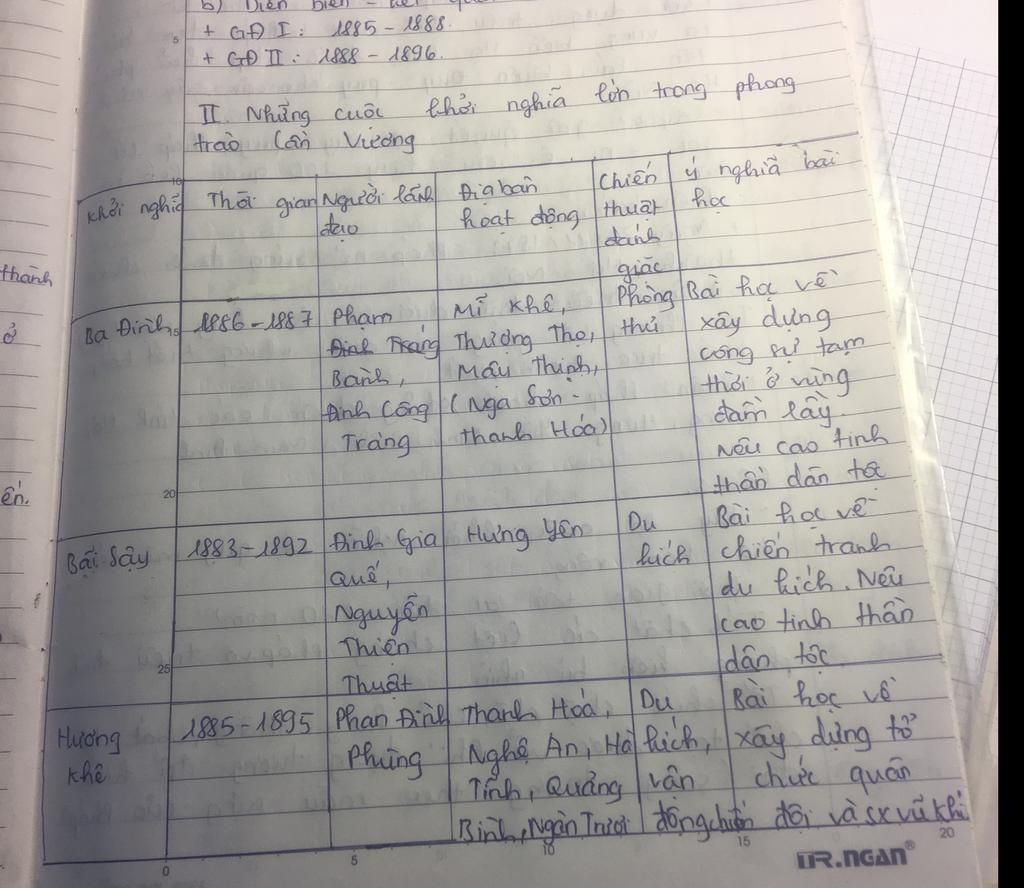 b) Diễn biến - kết quả
+ GĐ I: 1885 - 1888.
+ GĐ II: 1888 - 1896.
II. Những cuộc khởi nghĩa lớn trong phong
trào Cần Vương
Khởi nghĩa
Thời gian
Người lãnh
đạo
Địa bàn
hoạt động
Chiến
thuật
đánh
giặc
ý nghĩa bài
học
Ba Đình
1886 - 1887
Phạm
Đình Tráng
Bành,
Đinh Công
Tráng
Mĩ Khê,
Thượng Thọ,
Mậu Thịnh,
(Nga Sơn -
Thanh Hóa)
Phòng
thủ
Bài học về
xây dựng
công sự tạm
thời ở vùng
đầm lầy.
Nêu cao tinh
thần dân tộc
Bãi Sậy
1883 - 1892
Đinh Gia
Quế,
Nguyễn
Thiện
Thuật
Hưng Yên
Du
kích
Bài học về
chiến tranh
du kích. Nêu
cao tinh thần
dân tộc
Hương
Khê
1885 - 1895
Phan Đình
Phùng
Thanh Hóa,
Nghệ An, Hà
Tĩnh, Quảng
Bình, Ngàn Trươi
Du
kích,
vận
động chiến
Bài học về
xây dựng tổ
chức quân
đội và sx vũ khí
thành
ở
ến.
5
10
15
20
25
0
5
10
15
20
TR.NGAN®